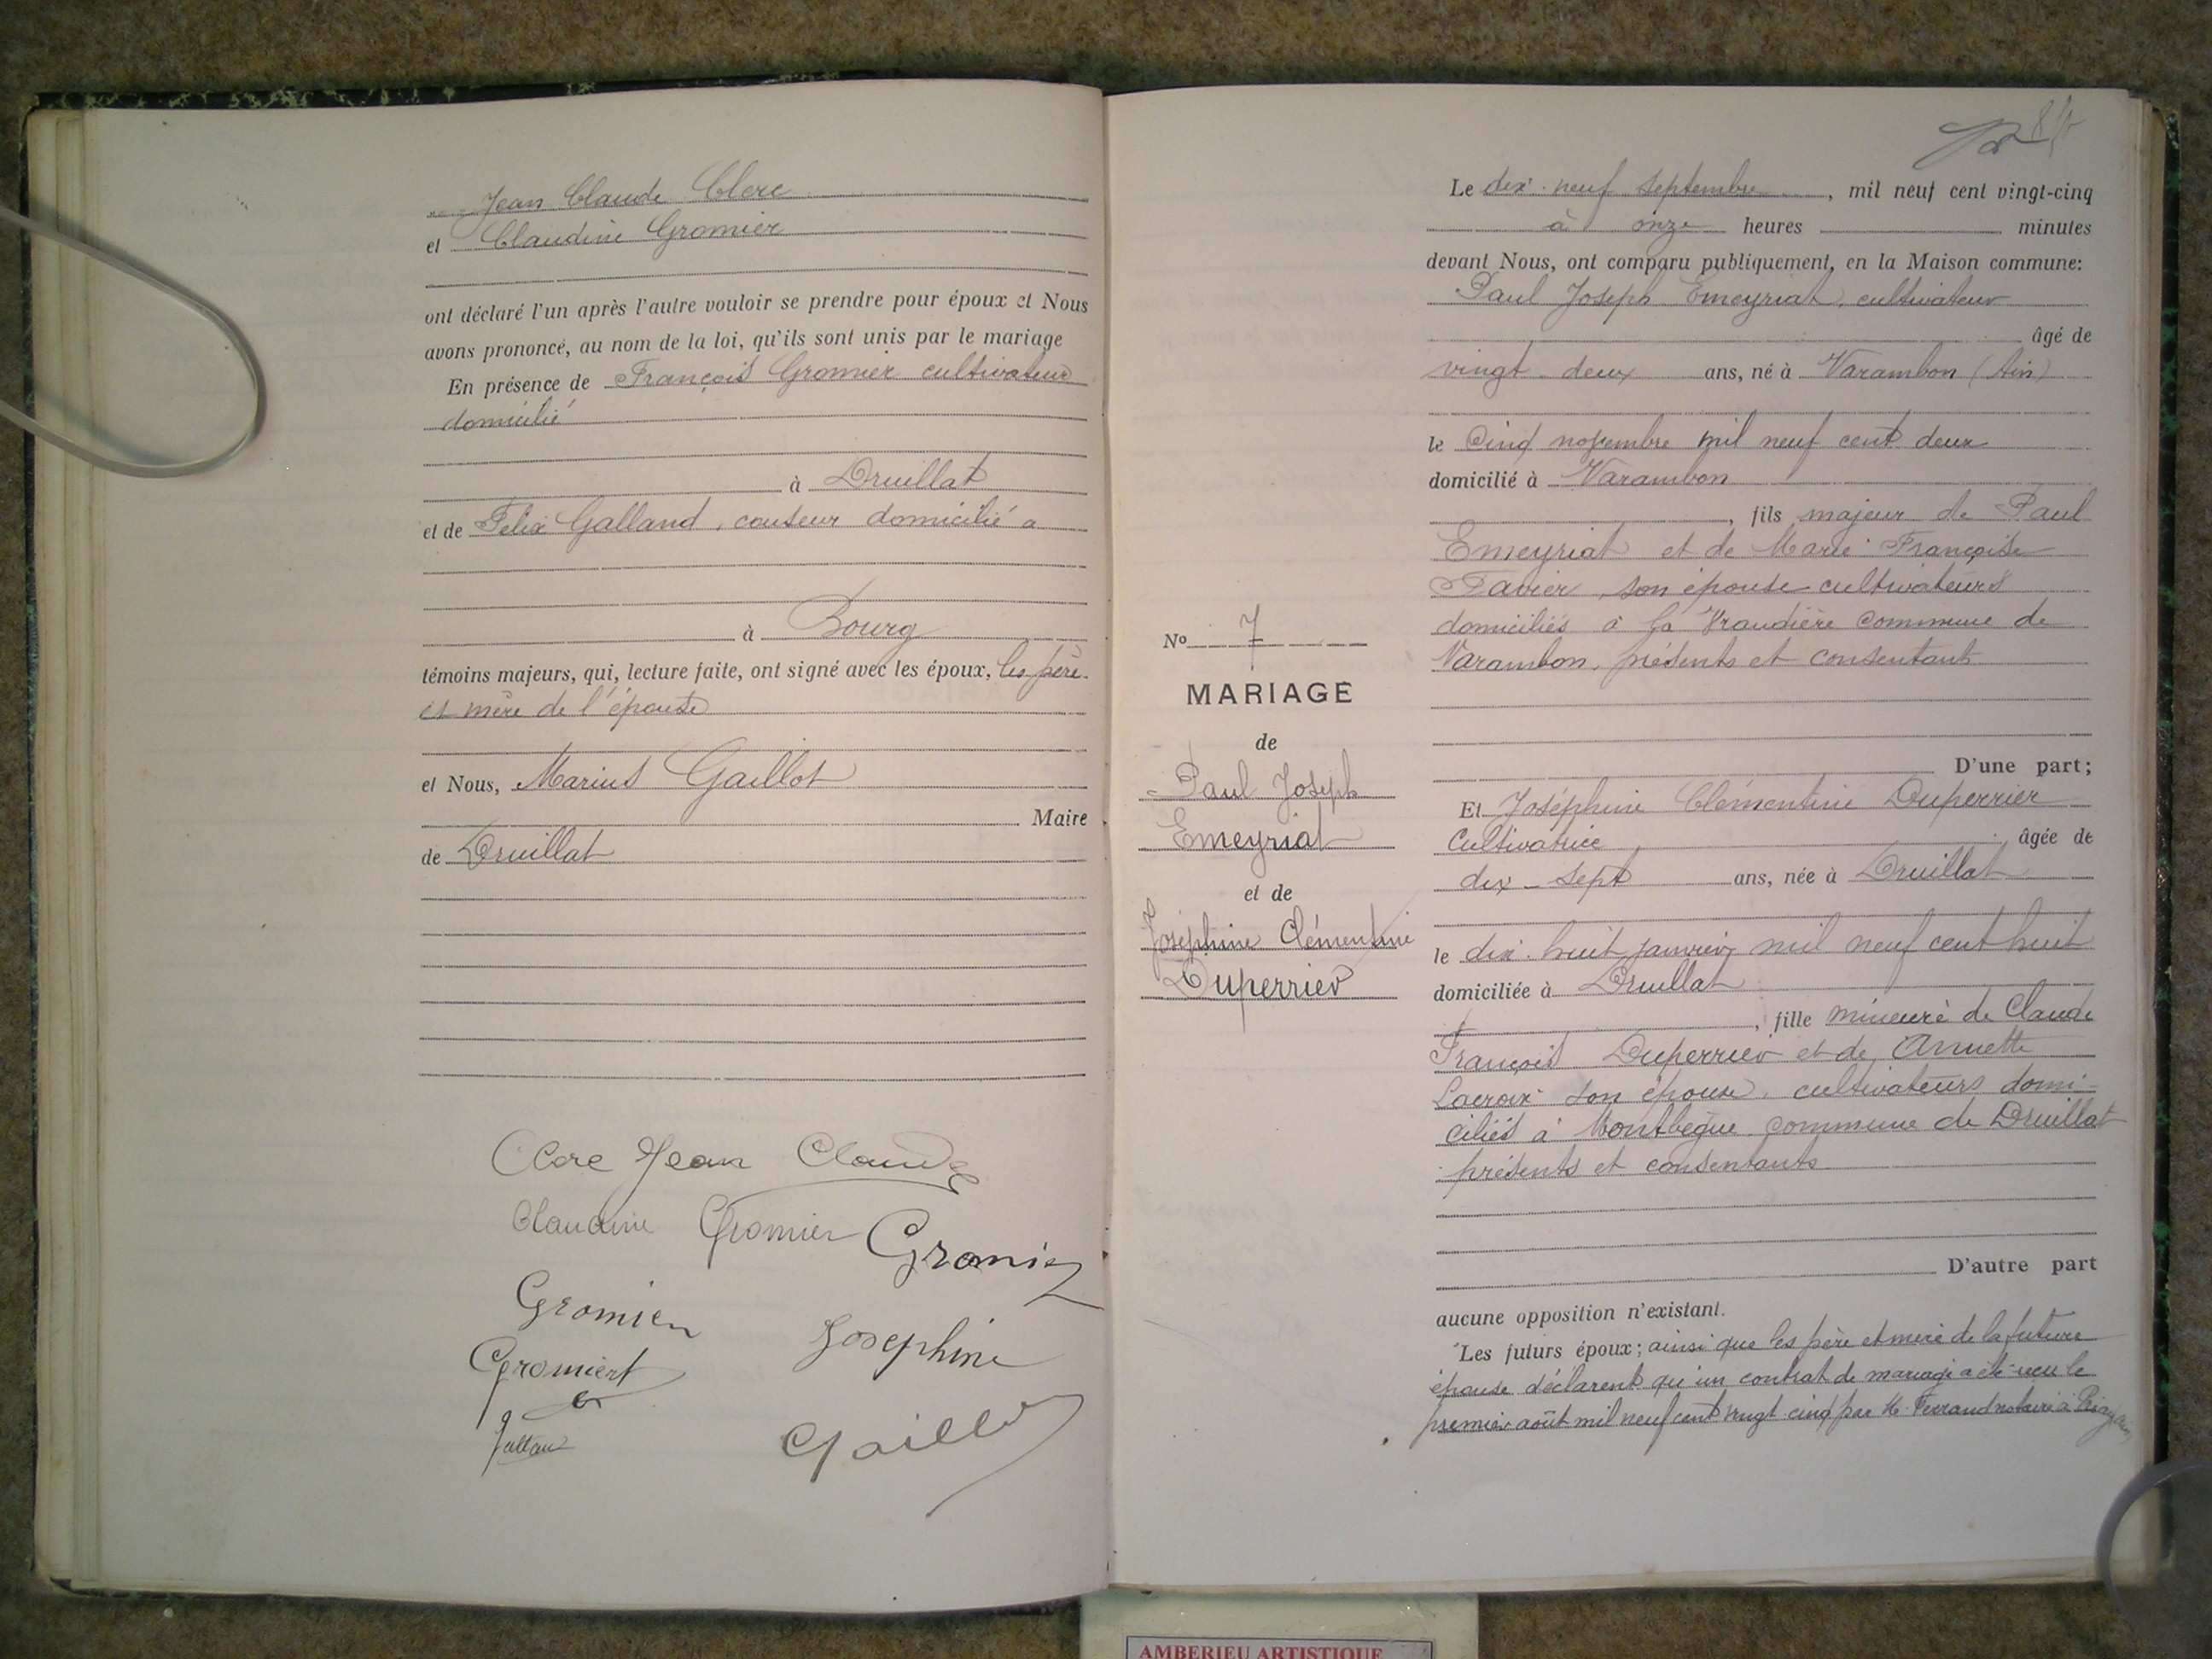 Jean Claude Clerc
et Claudine Gromier
ont déclaré l'un après l'autre vouloir se prendre pour époux et Nous
avons prononcé, au nom de la loi, qu'ils sont unis par le mariage
En présence de François Gromier cultivateur
domicilié
à Druillat
et de Felix Galland, couseur domicilié a
à Bourg
témoins majeurs, qui, lecture faite, ont signé avec les époux, les père
et mère de l'épouse
et Nous, Marius Gaillot
Maire
de Druillat
Clerc Jean Claude
Claudine Gromier Gromier
Gromier
Josephine
Gromier
Gaillot
Le dix-neuf septembre, mil neuf cent vingt-cinq
à onze heures minutes
devant Nous, ont comparu publiquement, en la Maison commune:
Paul Joseph Emeyriat, cultivateur
âgé de
vingt-deux ans, né à Varambon (Ain)
le Cinq novembre mil neuf cent deux
domicilié à Varambon
, fils majeur de Paul
Emeyriat et de Marie Françoise
Tavier, son épouse cultivateurs
domiciliés à la Vraudière commune de
Varambon, présents et consentants
D'une part;
Et Joséphine Clémentine Duperrier
Cultivatrice âgée de
dix-sept ans, née à Druillat
le dix-huit janvier mil neuf cent huit
domiciliée à Druillat
, fille mineure de Claude
François Duperrier et de Annette
Lacroix son épouse, cultivateurs domi-
ciliés à Montbègue commune de Druillat
présents et consentants
D'autre part
aucune opposition n'existant.
Les futurs époux; ainsi que les père et mère de la future
épouse déclarent qu'un contrat de mariage a été reçu le
premier août mil neuf cent vingt cinq par Me Ferrand notaire à
No 7
MARIAGE
de
Paul Joseph
Emeyriat
et de
Joséphine Clémentine
Duperrier
AMBERIEU ARTISTIQUE